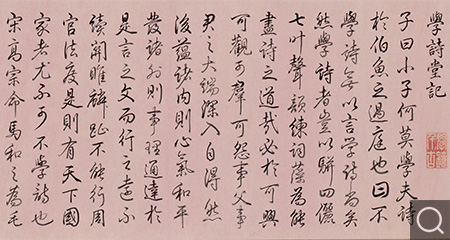 學詩堂記
子曰小子何莫學夫詩
於伯魚之過庭也曰不
學詩無以言學詩尚矣
然學詩者豈以駢四儷
七叶聲韻練詞藻為能
盡詩之道哉必於可興
可觀可羣可怨事父事
君之大端深入自得然
後蘊諸內則心氣和平
發諸外則事理通達於
是言之文而行之遠不
讀關雎麟趾不能行周
官法度是則有天下國
家者尤不可不學詩也
宋高宗命馬和之為毛